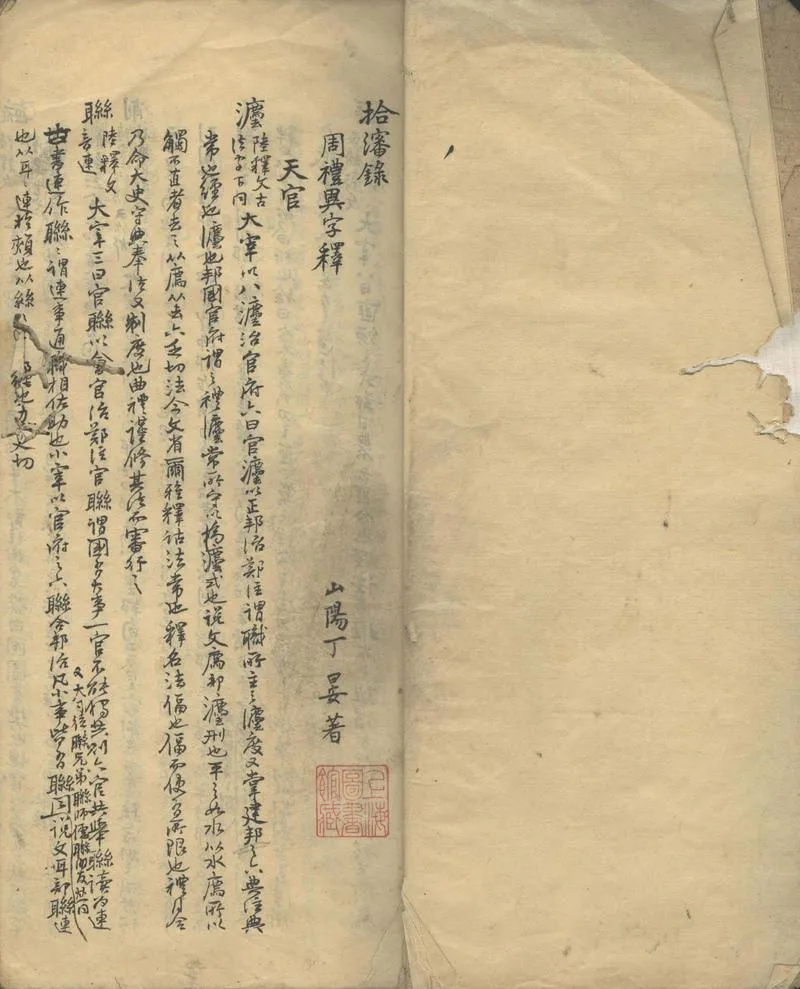 拾瀋錄
周禮異字釋
山陽丁晏著
上海圖書館藏
天官
灋 陸釋文古法字下同 大宰以八灋治官府六曰官灋以正邦治鄭注謂職所主之灋度又掌建邦之六典注典
常也經也灋也邦國官府謂之禮灋常所守以為灋式也說文廌部灋刑也平之如水从水廌所以
觸不直者去之从廌从去六乏切法今文省爾雅釋詁法常也釋名法偪也偪而使有所限也禮月令
乃命大史守典奉法又制度也曲禮謹修其法而審行之
聯 陸釋文音連 大宰三曰官聯以會官治鄭注官聯謂國有大事一官不能獨共則六官共舉聯讀為連
古書連作聯聯謂連事通職相佐助也小宰以官府之六聯合邦治凡小事皆有聯 說文耳部聯連
又大司徒聯兄弟聯師儒聯朋友注同
也从耳耳連於頰也从絲絲 絕也力 切